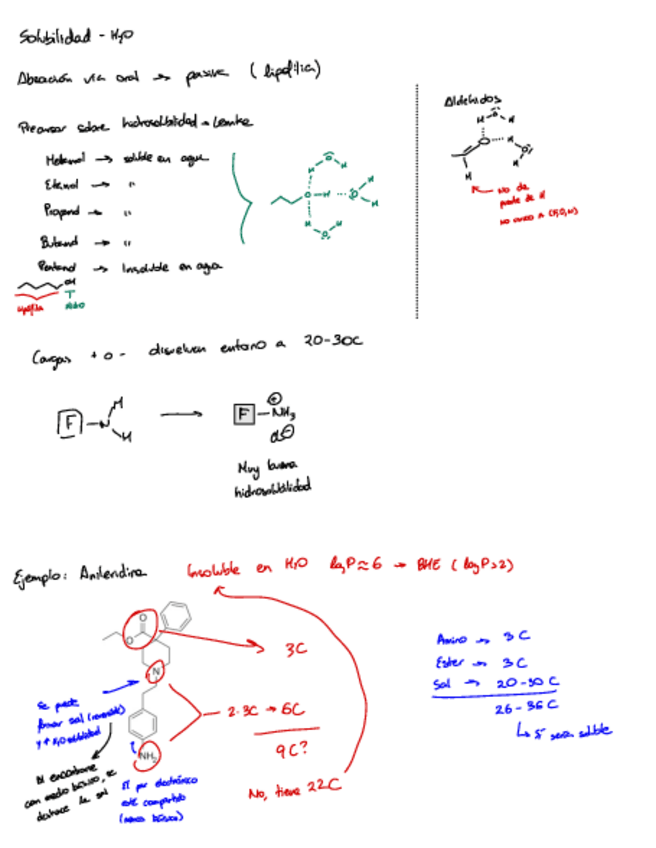 Solubilidad - H₂O
Absorción vía oral → pasiva (lipofílica)
Aldehidos
Precursor sobre hidrosolubilidad - Lemke
Metanol → soluble en agua
Etanol → "
Propanol → "
Butanol → "
Pentanol → Insoluble en agua
OH
lipofílica
hidro
No da
puente de H
no unido a (F,O,N)
Cargas + o - disuelven entorno a 20-30C
F -N H H → F -NH₃ ⊕
Cl⊖
Muy buena
hidrosolubilidad
Ejemplo: Anileridina
Insoluble en H₂O log P ≈ 6 → BHE (log P>2)
3C
2·3C → 6C
9C?
No, tiene 22C
Se puede
formar sal (reversible)
y ↑ H₂O solubilidad
Al encontrarse
con medio básico, se
deshace la sal
NH₂
El par electrónico
está compartido
(menos básico)
Amino → 3C
Ester → 3C
Sal → 20-30C
26-36C
↳ Sí sería soluble